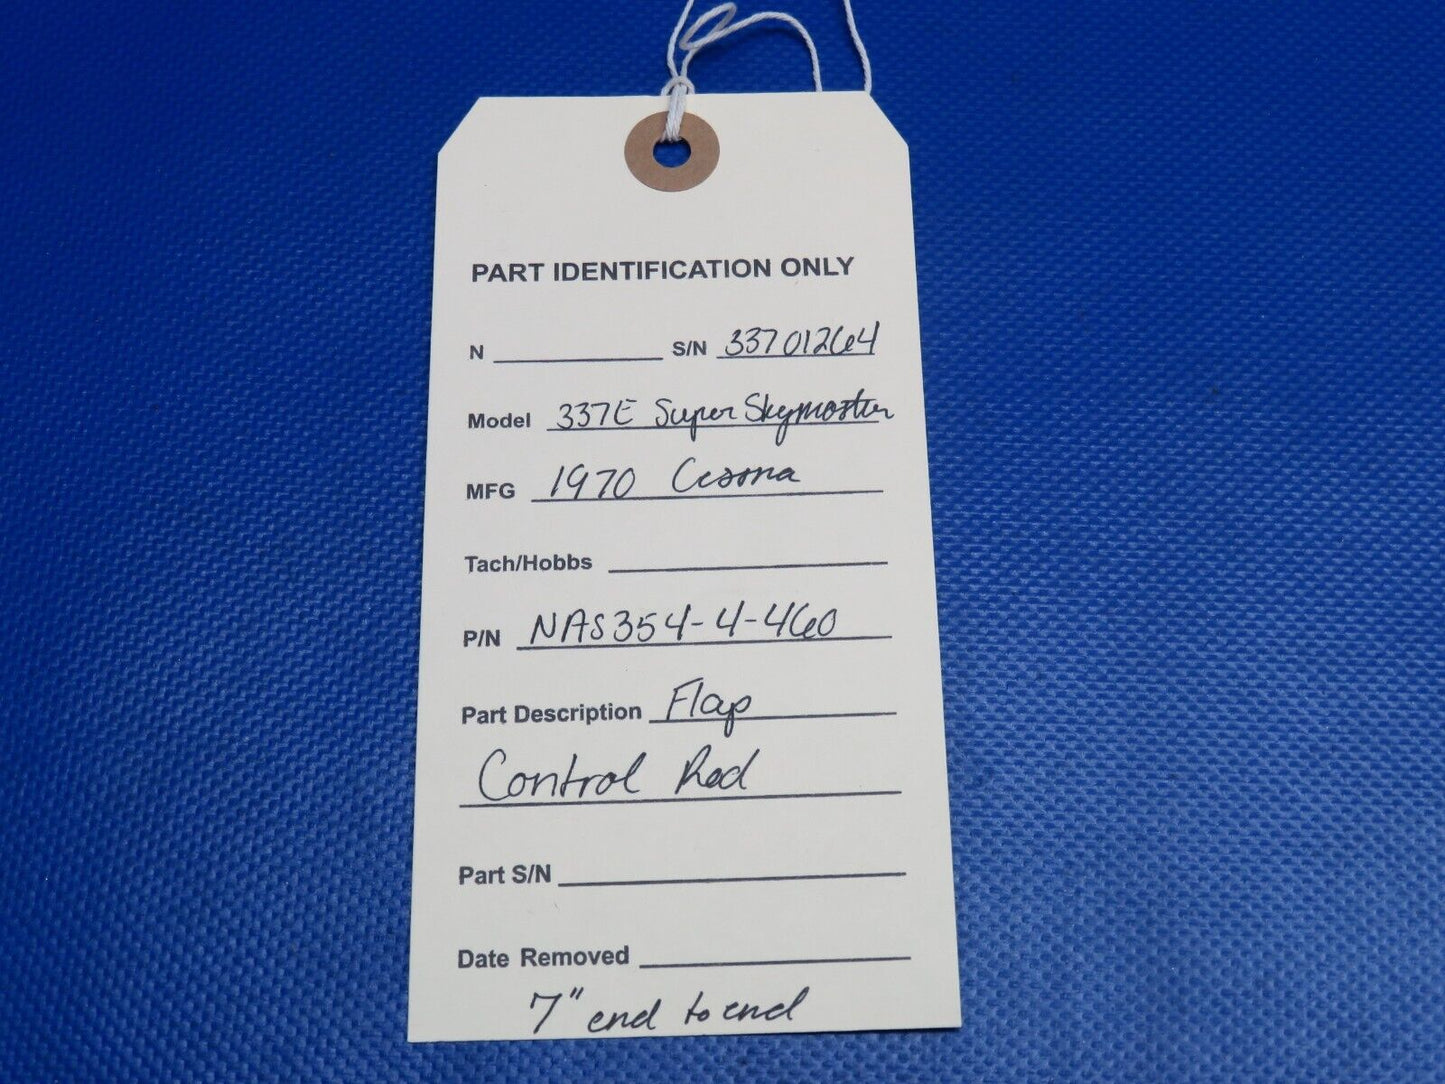 PART IDENTIFICATION ONLY
N S/N 33701264
Model 337E Super Skymaster
MFG 1970 Cessna
Tach/Hobbs
P/N NAS354-4-460
Part Description Flap
Control Rod
Part S/N
Date Removed
7" end to end